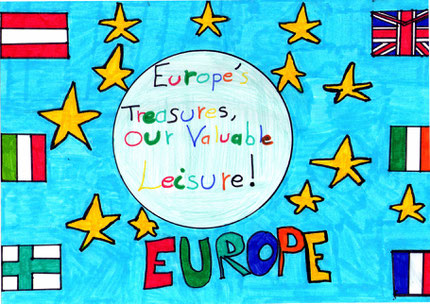 Europe's
Treasures,
Our Valuable
Leisure!
EUROPE